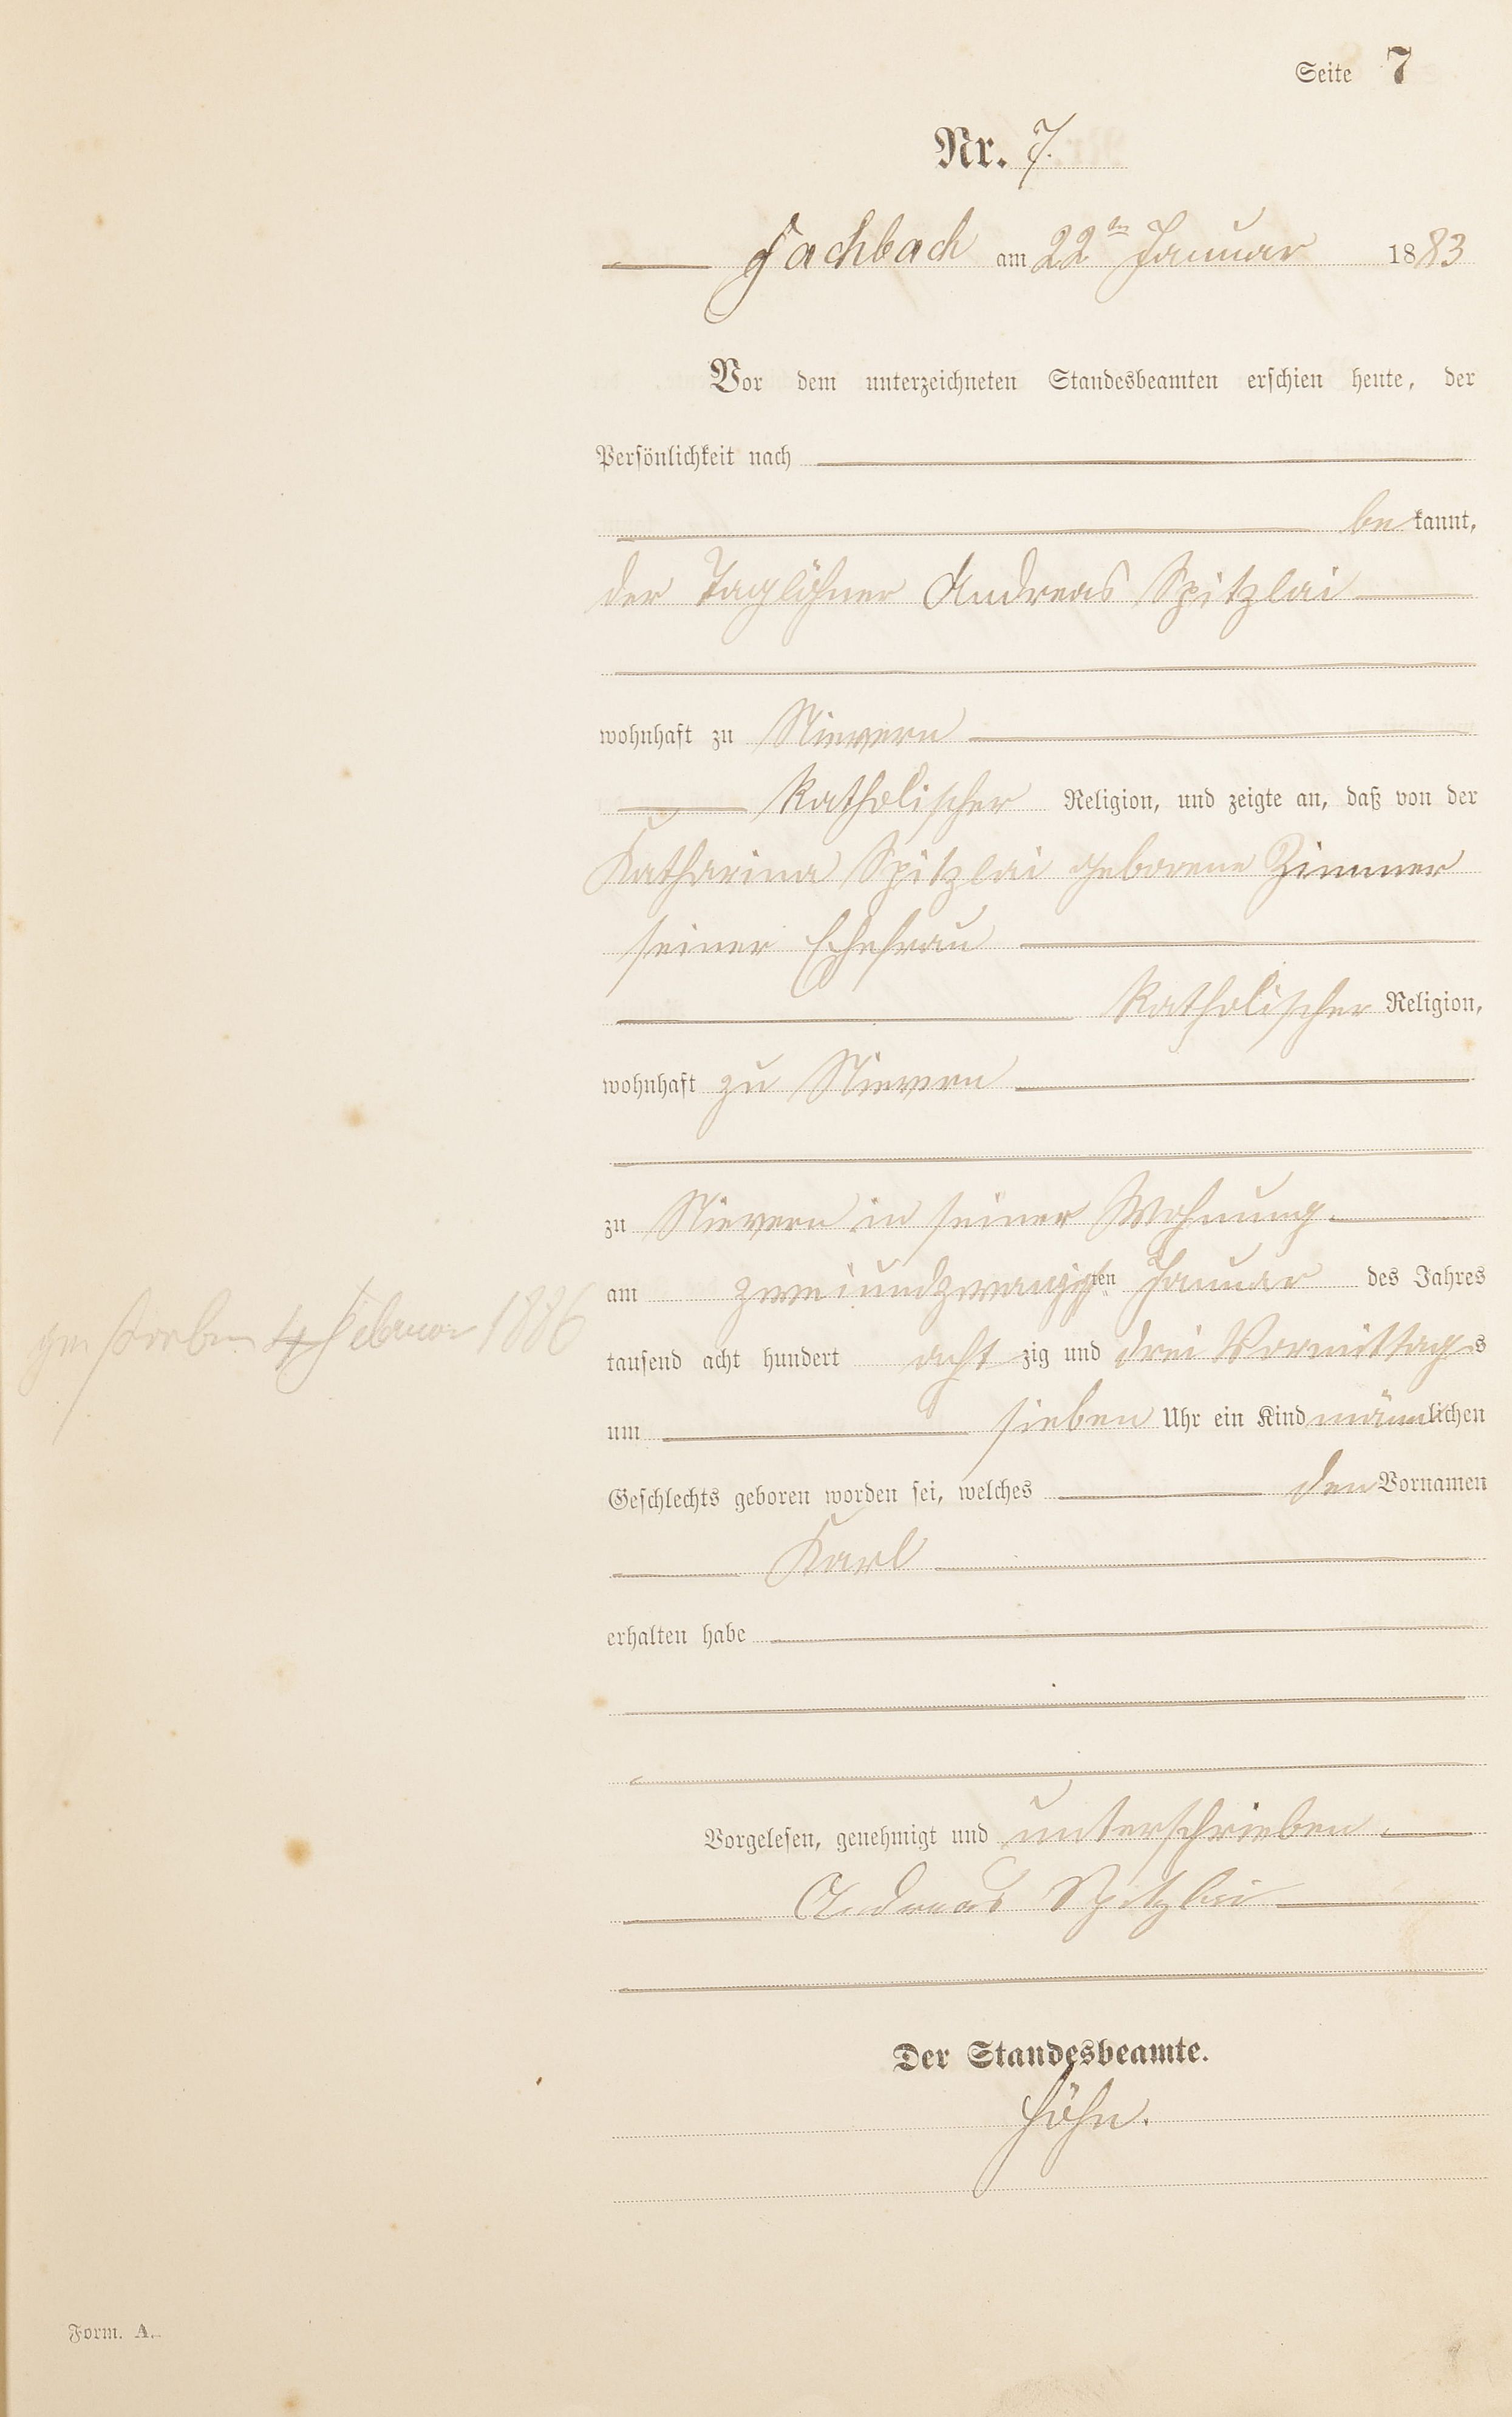 Seite 7
Nr. 7.
Fachbach am 22ten Januar 1883
Vor dem unterzeichneten Standesbeamten erschien heute, der
Persönlichkeit nach
be kannt,
der Taglöhner Andreas Spitzlai
wohnhaft zu Nievern
katholischer Religion, und zeigte an, daß von der
Katharina Spitzlai geborene Zimmer
seiner Ehefrau
katholischer Religion,
wohnhaft zu Nievern
zu Nievern in seiner Wohnung
am zweiundzwanzigsten Januar des Jahres
gestorben 4 Februar 1886
tausend acht hundert acht zig und drei Vormittags
um sieben Uhr ein Kind männlichen
Geschlechts geboren worden sei, welches den Vornamen
Karl
erhalten habe
Vorgelesen, genehmigt und unterschrieben.
Andreas Spitzlai
Der Standesbeamte.
Höhn.
Form. A.